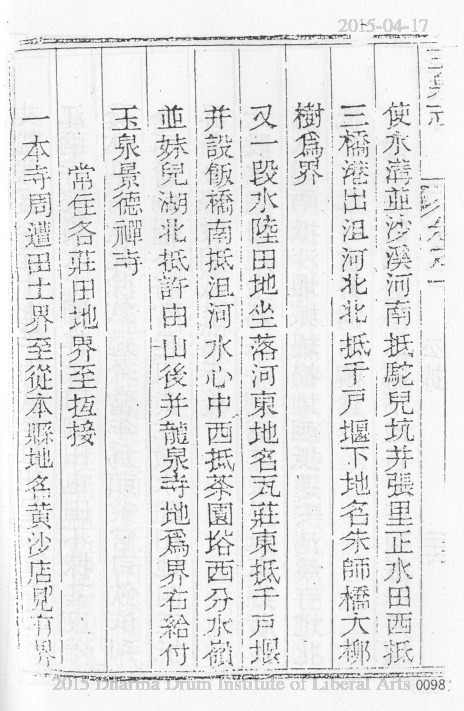 2015-04-17
使水溝並沙溪河南抵駝兒坑并張里正水田西抵
三橋港出沮河北北抵千戶堰下地名朱師橋大柳
樹爲界
又一段水陸田地坐落河東地名瓦莊東抵千戶堰
并設飯橋南抵沮河水心中西抵茶園垎西分水嶺
並妹兒湖北抵許由山後并龍泉寺地爲界右給付
玉泉景德禪寺
常住各莊田地界至掗接
一本寺周遭田土界至從本縣地名黄沙店見有界
2015 Dharma Drum Institute of Liberal Arts 0098